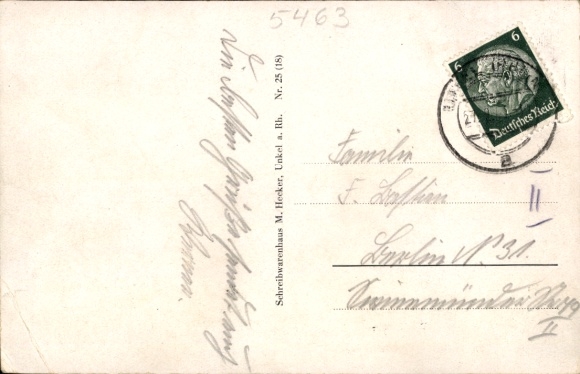 5463
Die besten Grüße sendet aus
Schreibwarenhaus M. Heeker, Unkel a. Rh. Nr. 25 (18)
6 6
Deutsches Reich
a
Familie
F. Bastian
Berlin N 31.
Swinemünder Str. 79
II
II